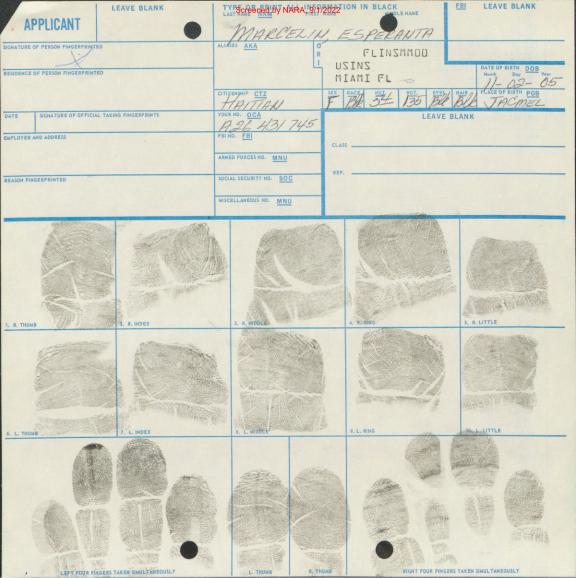 Screened by NARA, 9/1/2022
APPLICANT
LEAVE BLANK
TYPE OR PRINT ALL INFORMATION IN BLACK
LAST NAME NAM FIRST NAME MIDDLE NAME
FBI LEAVE BLANK
MARCELIN, ESPERANTA
SIGNATURE OF PERSON FINGERPRINTED
X
ALIASES AKA
O
R
I
FLINSMM00
USINS
MIAMI FL
RESIDENCE OF PERSON FINGERPRINTED
DATE OF BIRTH DOB
Month Day Year
11-02-05
CITIZENSHIP CTZ
HAITIAN
SEX RACE HGT. WGT. EYES HAIR PLACE OF BIRTH POB
F Blk 5'4" 135 Blk Blk JACMEL
DATE SIGNATURE OF OFFICIAL TAKING FINGERPRINTS
YOUR NO. OCA
A26 431 745
LEAVE BLANK
EMPLOYER AND ADDRESS
FBI NO. FBI
CLASS
ARMED FORCES NO. MNU
REF.
REASON FINGERPRINTED
SOCIAL SECURITY NO. SOC
MISCELLANEOUS NO. MNU
1. R. THUMB 2. R. INDEX 3. R. MIDDLE 4. R. RING 5. R. LITTLE
6. L. THUMB 7. L. INDEX 8. L. MIDDLE 9. L. RING 10. L. LITTLE
LEFT FOUR FINGERS TAKEN SIMULTANEOUSLY L. THUMB R. THUMB RIGHT FOUR FINGERS TAKEN SIMULTANEOUSLY